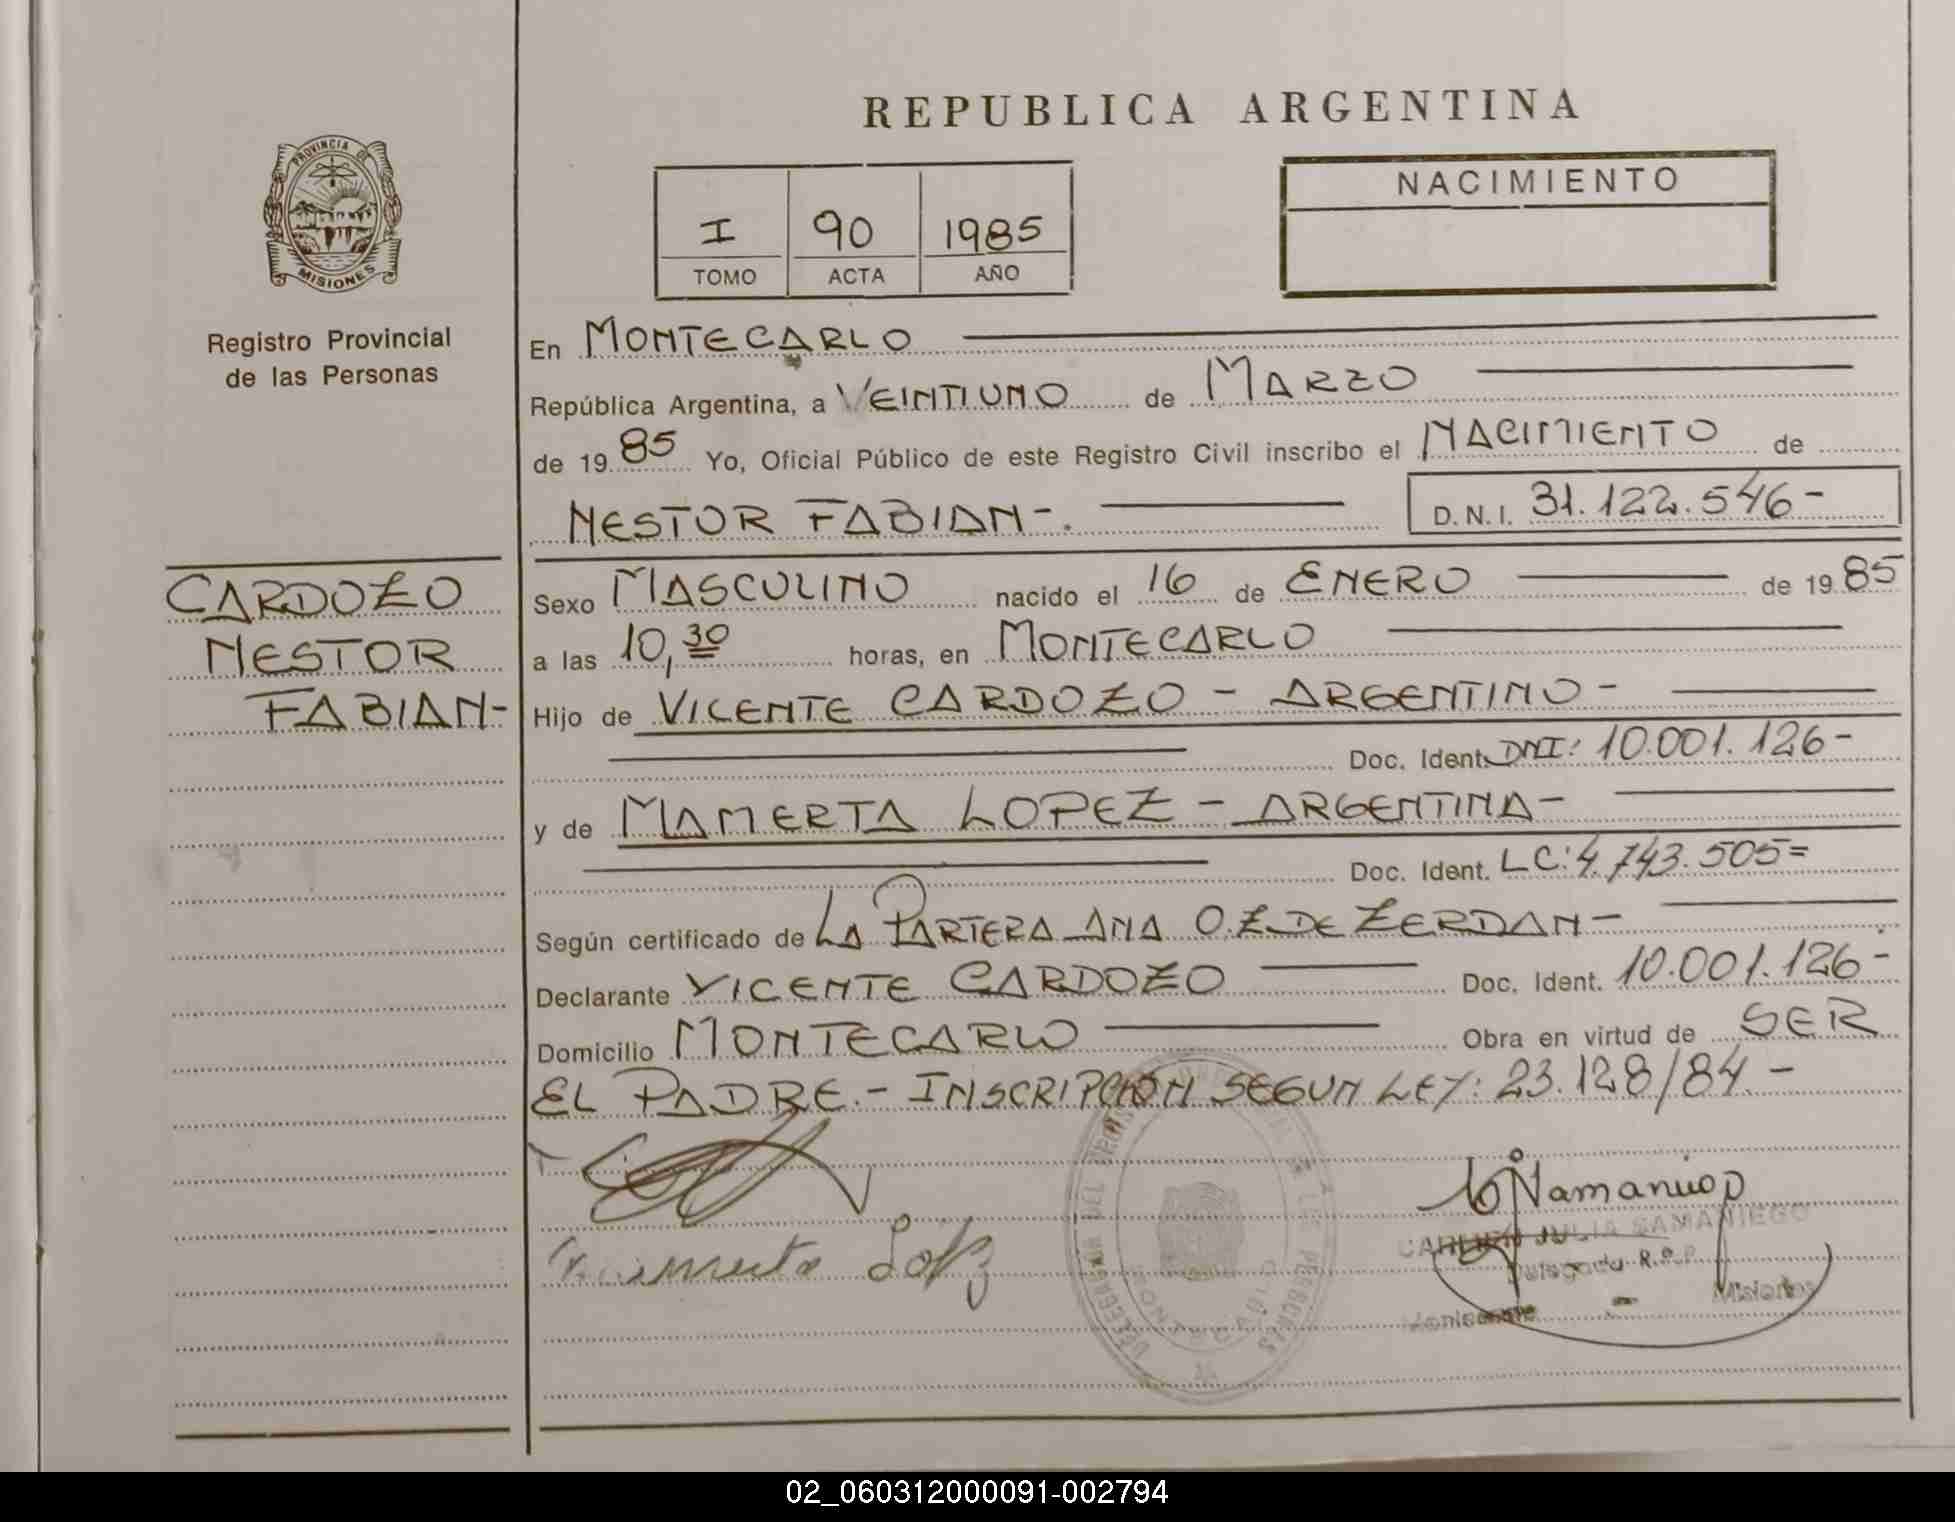 REPUBLICA ARGENTINA
PROVINCIA DE
MISIONES
Registro Provincial
de las Personas
I 90 1985
TOMO ACTA AÑO
NACIMIENTO
En MONTECARLO
República Argentina, a VEINTIUNO de MARZO
de 1985 Yo, Oficial Público de este Registro Civil inscribo el NACIMIENTO de
NESTOR FABIAN-. D.N.I. 31.122.546-
CARDOZO
NESTOR
FABIAN-
Sexo MASCULINO nacido el 16 de ENERO de 1985
a las 10,30 horas, en MONTECARLO
Hijo de VICENTE CARDOZO - ARGENTINO -
Doc. Ident. DNI: 10.001.126-
y de MAMERTA LOPEZ - ARGENTINA-
Doc. Ident. LC: 4.743.505=
Según certificado de LA PARTERA ANA O.Z.DE ZERDAN-
Declarante VICENTE CARDOZO Doc. Ident. 10.001.126-
Domicilio MONTECARLO Obra en virtud de SER
EL PADRE.- INSCRIPCION SEGUN LEY: 23.128/84 -
CARMEN JULIA SAMANIEGO
Delegada R.C.P.
Misiones
02_060312000091-002794